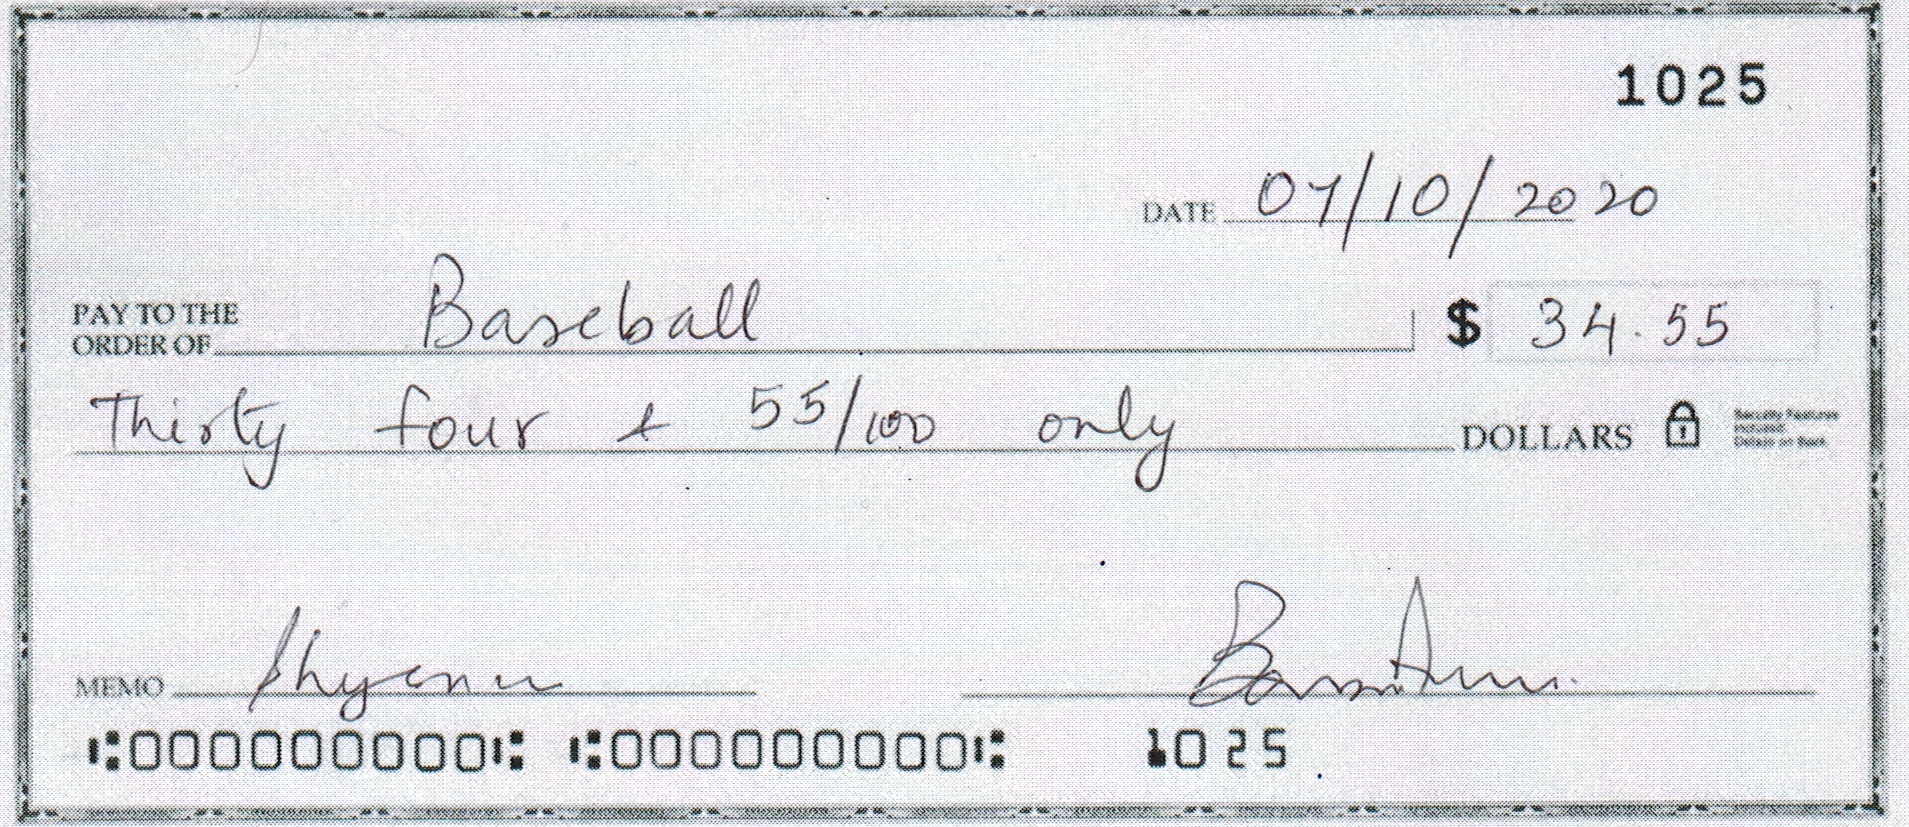 1025
DATE 07/10/2020
PAY TO THE
ORDER OF Baseball $ 34.55
Thirty four & 55/100 only DOLLARS
Security Features
Included
Details on Back
MEMO
⑆000000000⑆ ⑆000000000⑆ 1025